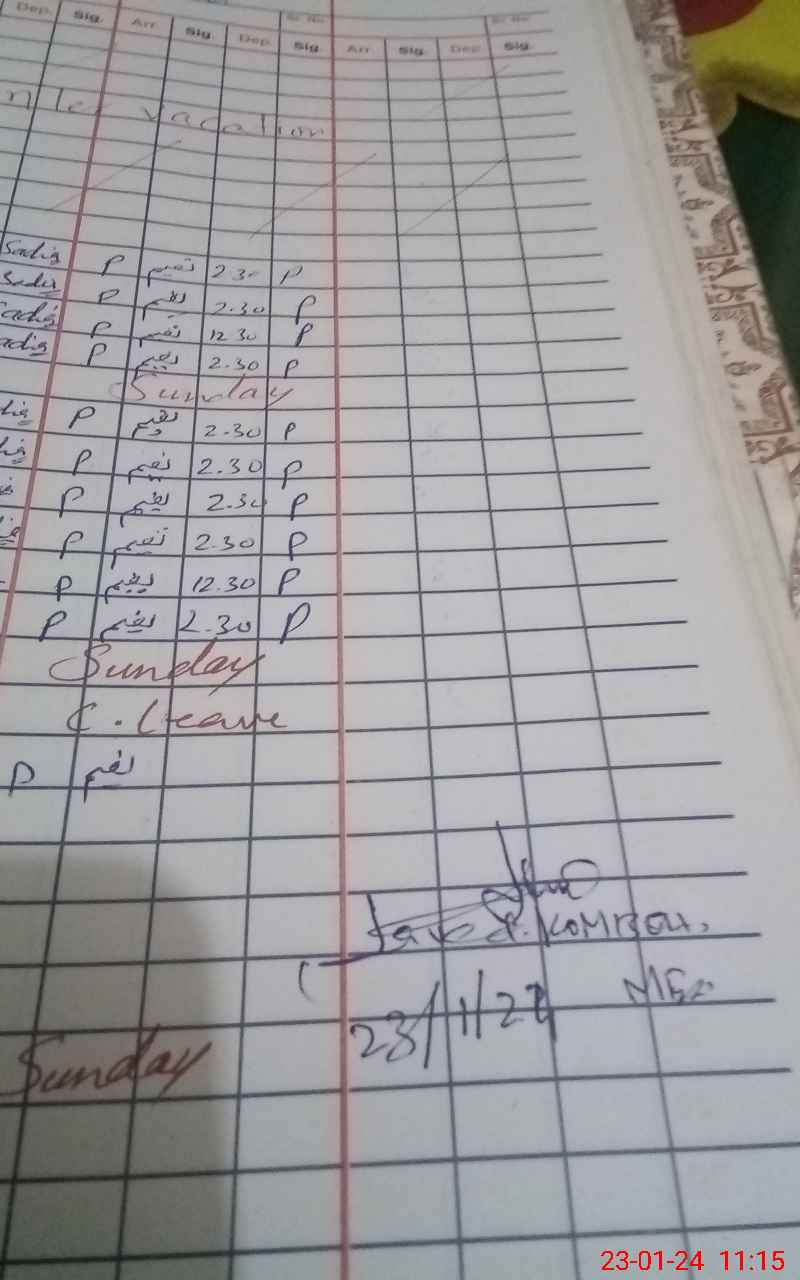 Dep. Sig. Arr. Sig. Dep. Sig. Arr. Sig. Dep. Sig.
vacation
Sadiq P نعيم 2.30 P
Sadiq P نعيم 2.30 P
Sadiq P نعيم 12.30 P
adiq P نعيم 2.30 P
Sunday
diq P نعيم 2.30 P
P نعيم 2.30 P
P نعيم 2.30 P
P نعيم 2.30 P
P نعيم 12.30 P
P نعيم 2.30 P
Sunday
C. Leave
P نعيم
23/1/24
Sunday
23-01-24 11:15